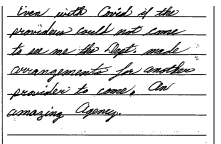 Even with Covid if the
providers could not come
to see me the Dept. made
arrangements for another
provider to come. An
amazing Agency.